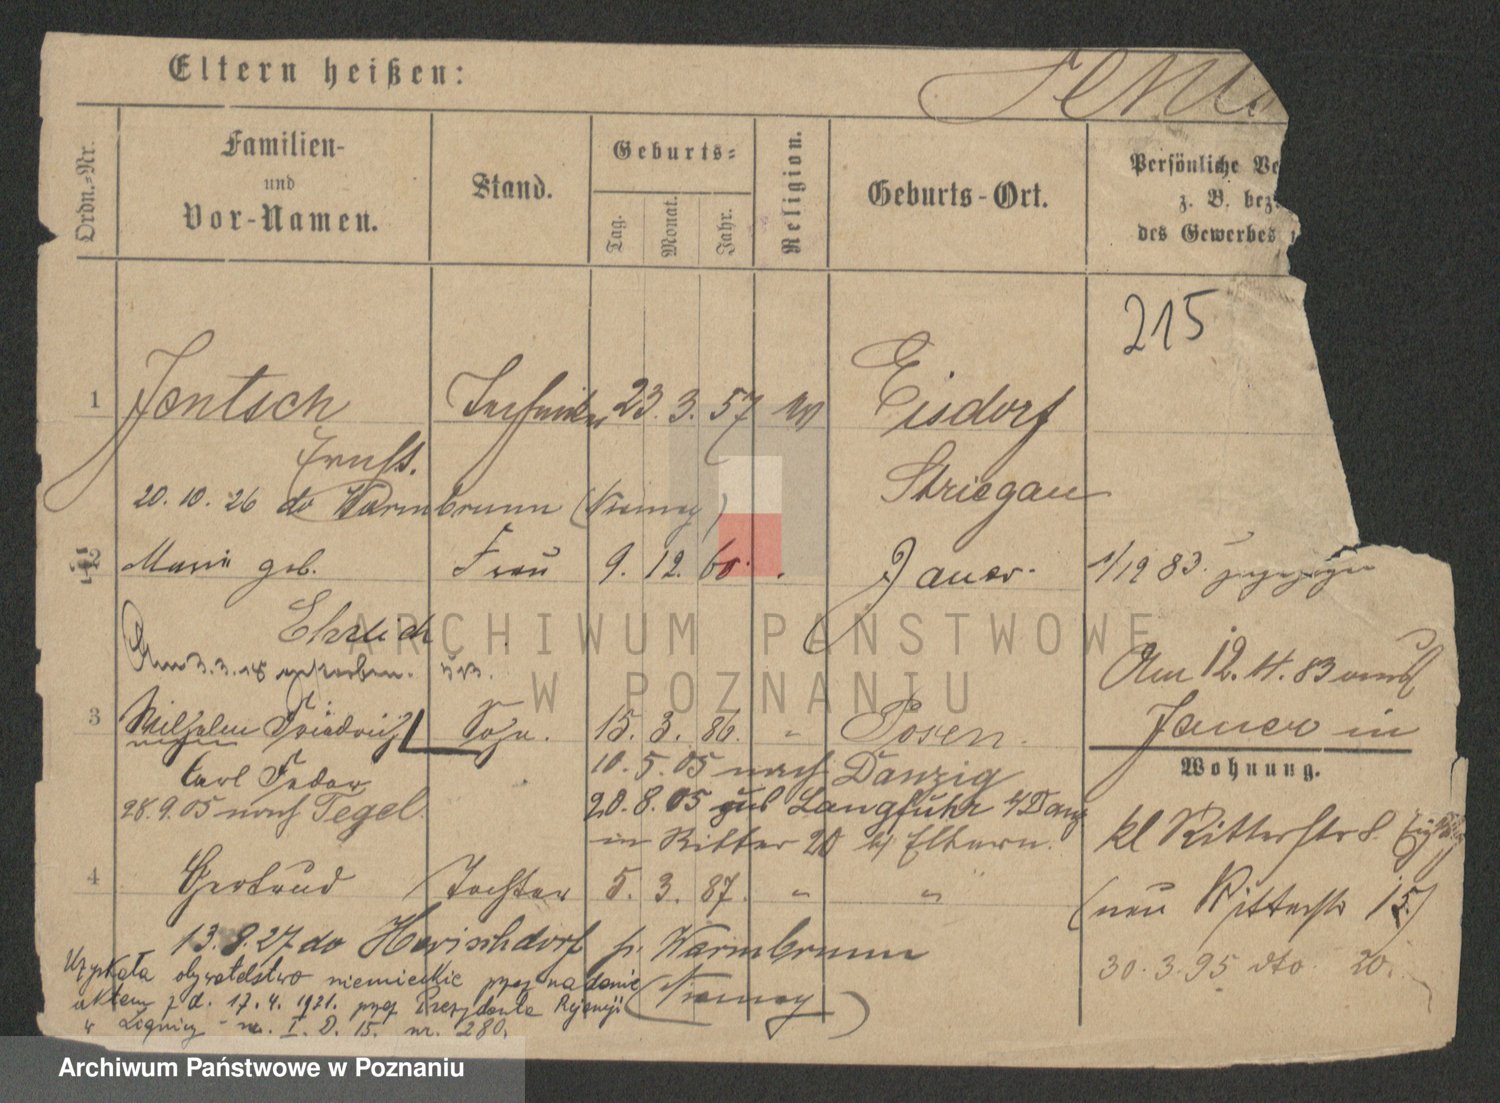 Eltern heißen:
Ordn.-Nr.
Familien-
und
Vor-Namen.
Stand.
Geburts-
Tag.
Monat.
Jahr.
Religion.
Geburts-Ort.
Persönliche Ve
z. B. bez.
des Gewerbes
215
1 Jentsch 23. 3. 57 Eisdorf
Ernst. Striegau
20. 10. 26 do Warmbrunn (Niemcy)
2 Marie geb. Frau 9. 12. 60. Jauer. 1/12 83.
Ehrlich
Am 3. 3. 18 gestorben.
Am 12. 11. 83
Jauer in
3 Wilhelm Friedrich Sohn. 15. 3. 86. " Posen.
Wohnung.
Carl Fedor 10. 5. 05 nach Danzig
28. 9. 05 nach Tegel. 20. 8. 05 Langfuhr b/ Danz
in Ritter 20 b/ Eltern.
kl Ritterstr 8.
4 Gertrud Tochter 5. 3. 87. " "
(neu Ritterstr 15.)
13. 8. 27 do Herischdorf p. Warmbrunn
(Niemcy)
30. 3. 95 dto 20.
Uzyskała obywatelstwo niemieckie przez nadanie
aktem z d. 17. 4. 1921. przez Prezydenta Rejencji
w Lignicy - I. D. 15. nr. 280.
ARCHIWUM PAŃSTWOWE
W POZNANIU
Archiwum Państwowe w Poznaniu